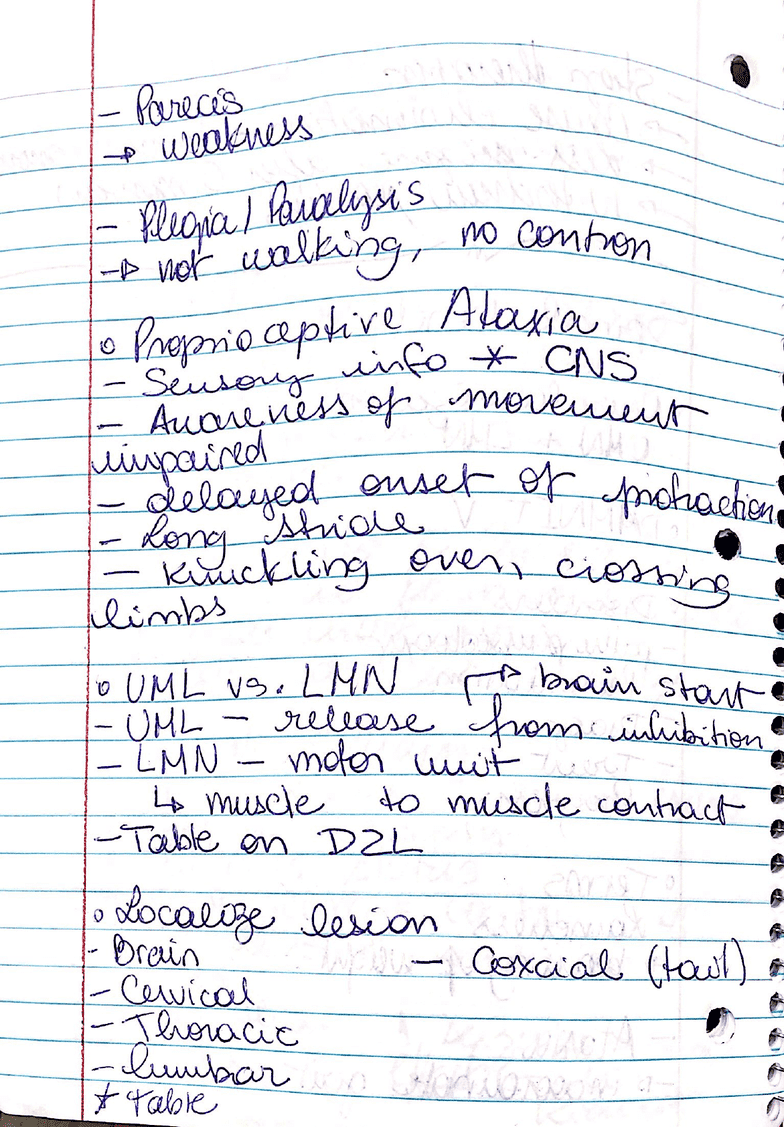 - Parecis
→ weakness
- Plegia / Paralysis
→ not walking, no control
o Proprioceptive Ataxia
- Sensory info * CNS
- Awareness of movement
impaired
- delayed onset of protraction
- Long stride
- Knuckling over, crossing
limbs
o UML vs. LMN ↱ brain start
- UML - release from inhibition
- LMN - motor unit
↳ muscle to muscle contract
- Table on D2L
o Localize lesion
- Brain - Coxcial (tail)
- Cervical
- Thoracic
- lumbar
* table